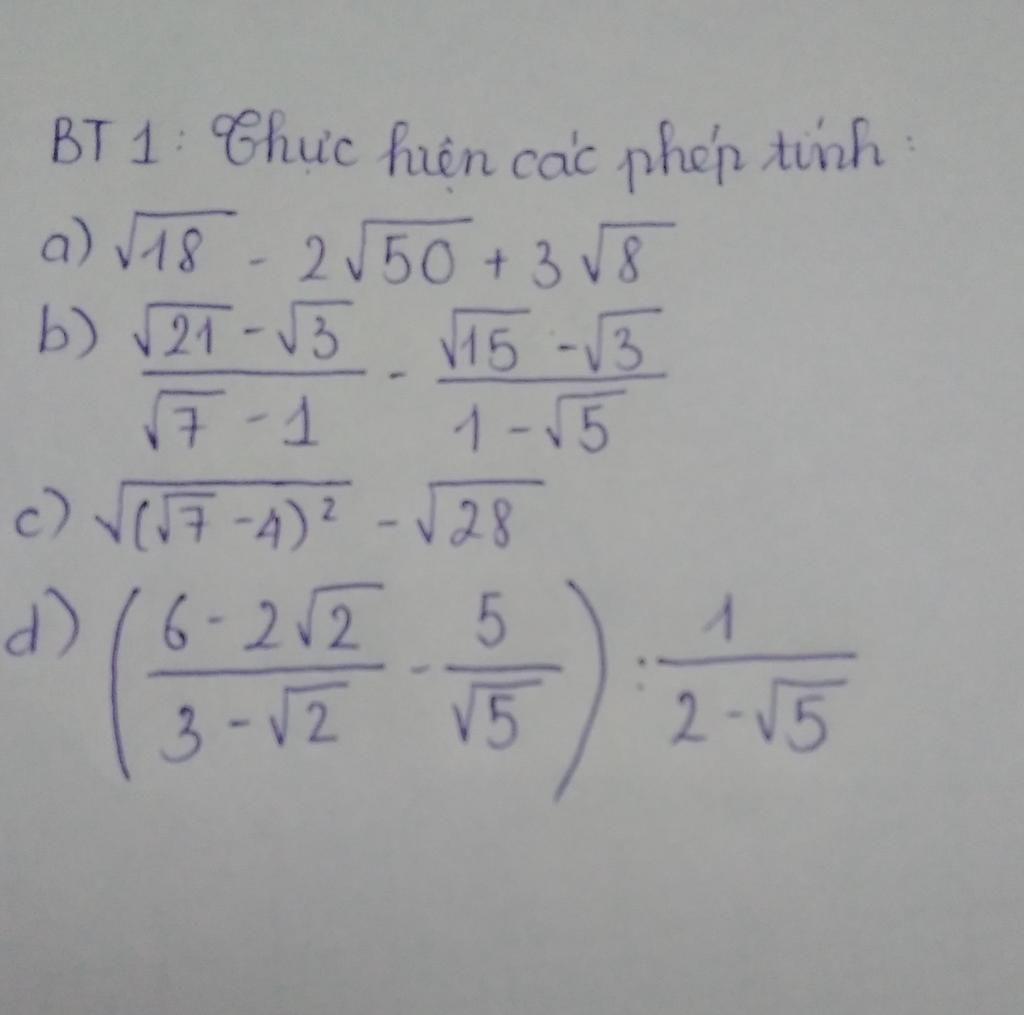 BT 1: Thực hiện các phép tính:
a) √18 - 2√50 + 3√8
b) (√21 - √3)/(√7 - 1) - (√15 - √3)/(1 - √5)
c) √((√7 - 4)²) - √28
d) ((6 - 2√2)/(3 - √2) - 5/√5) : 1/(2 - √5)